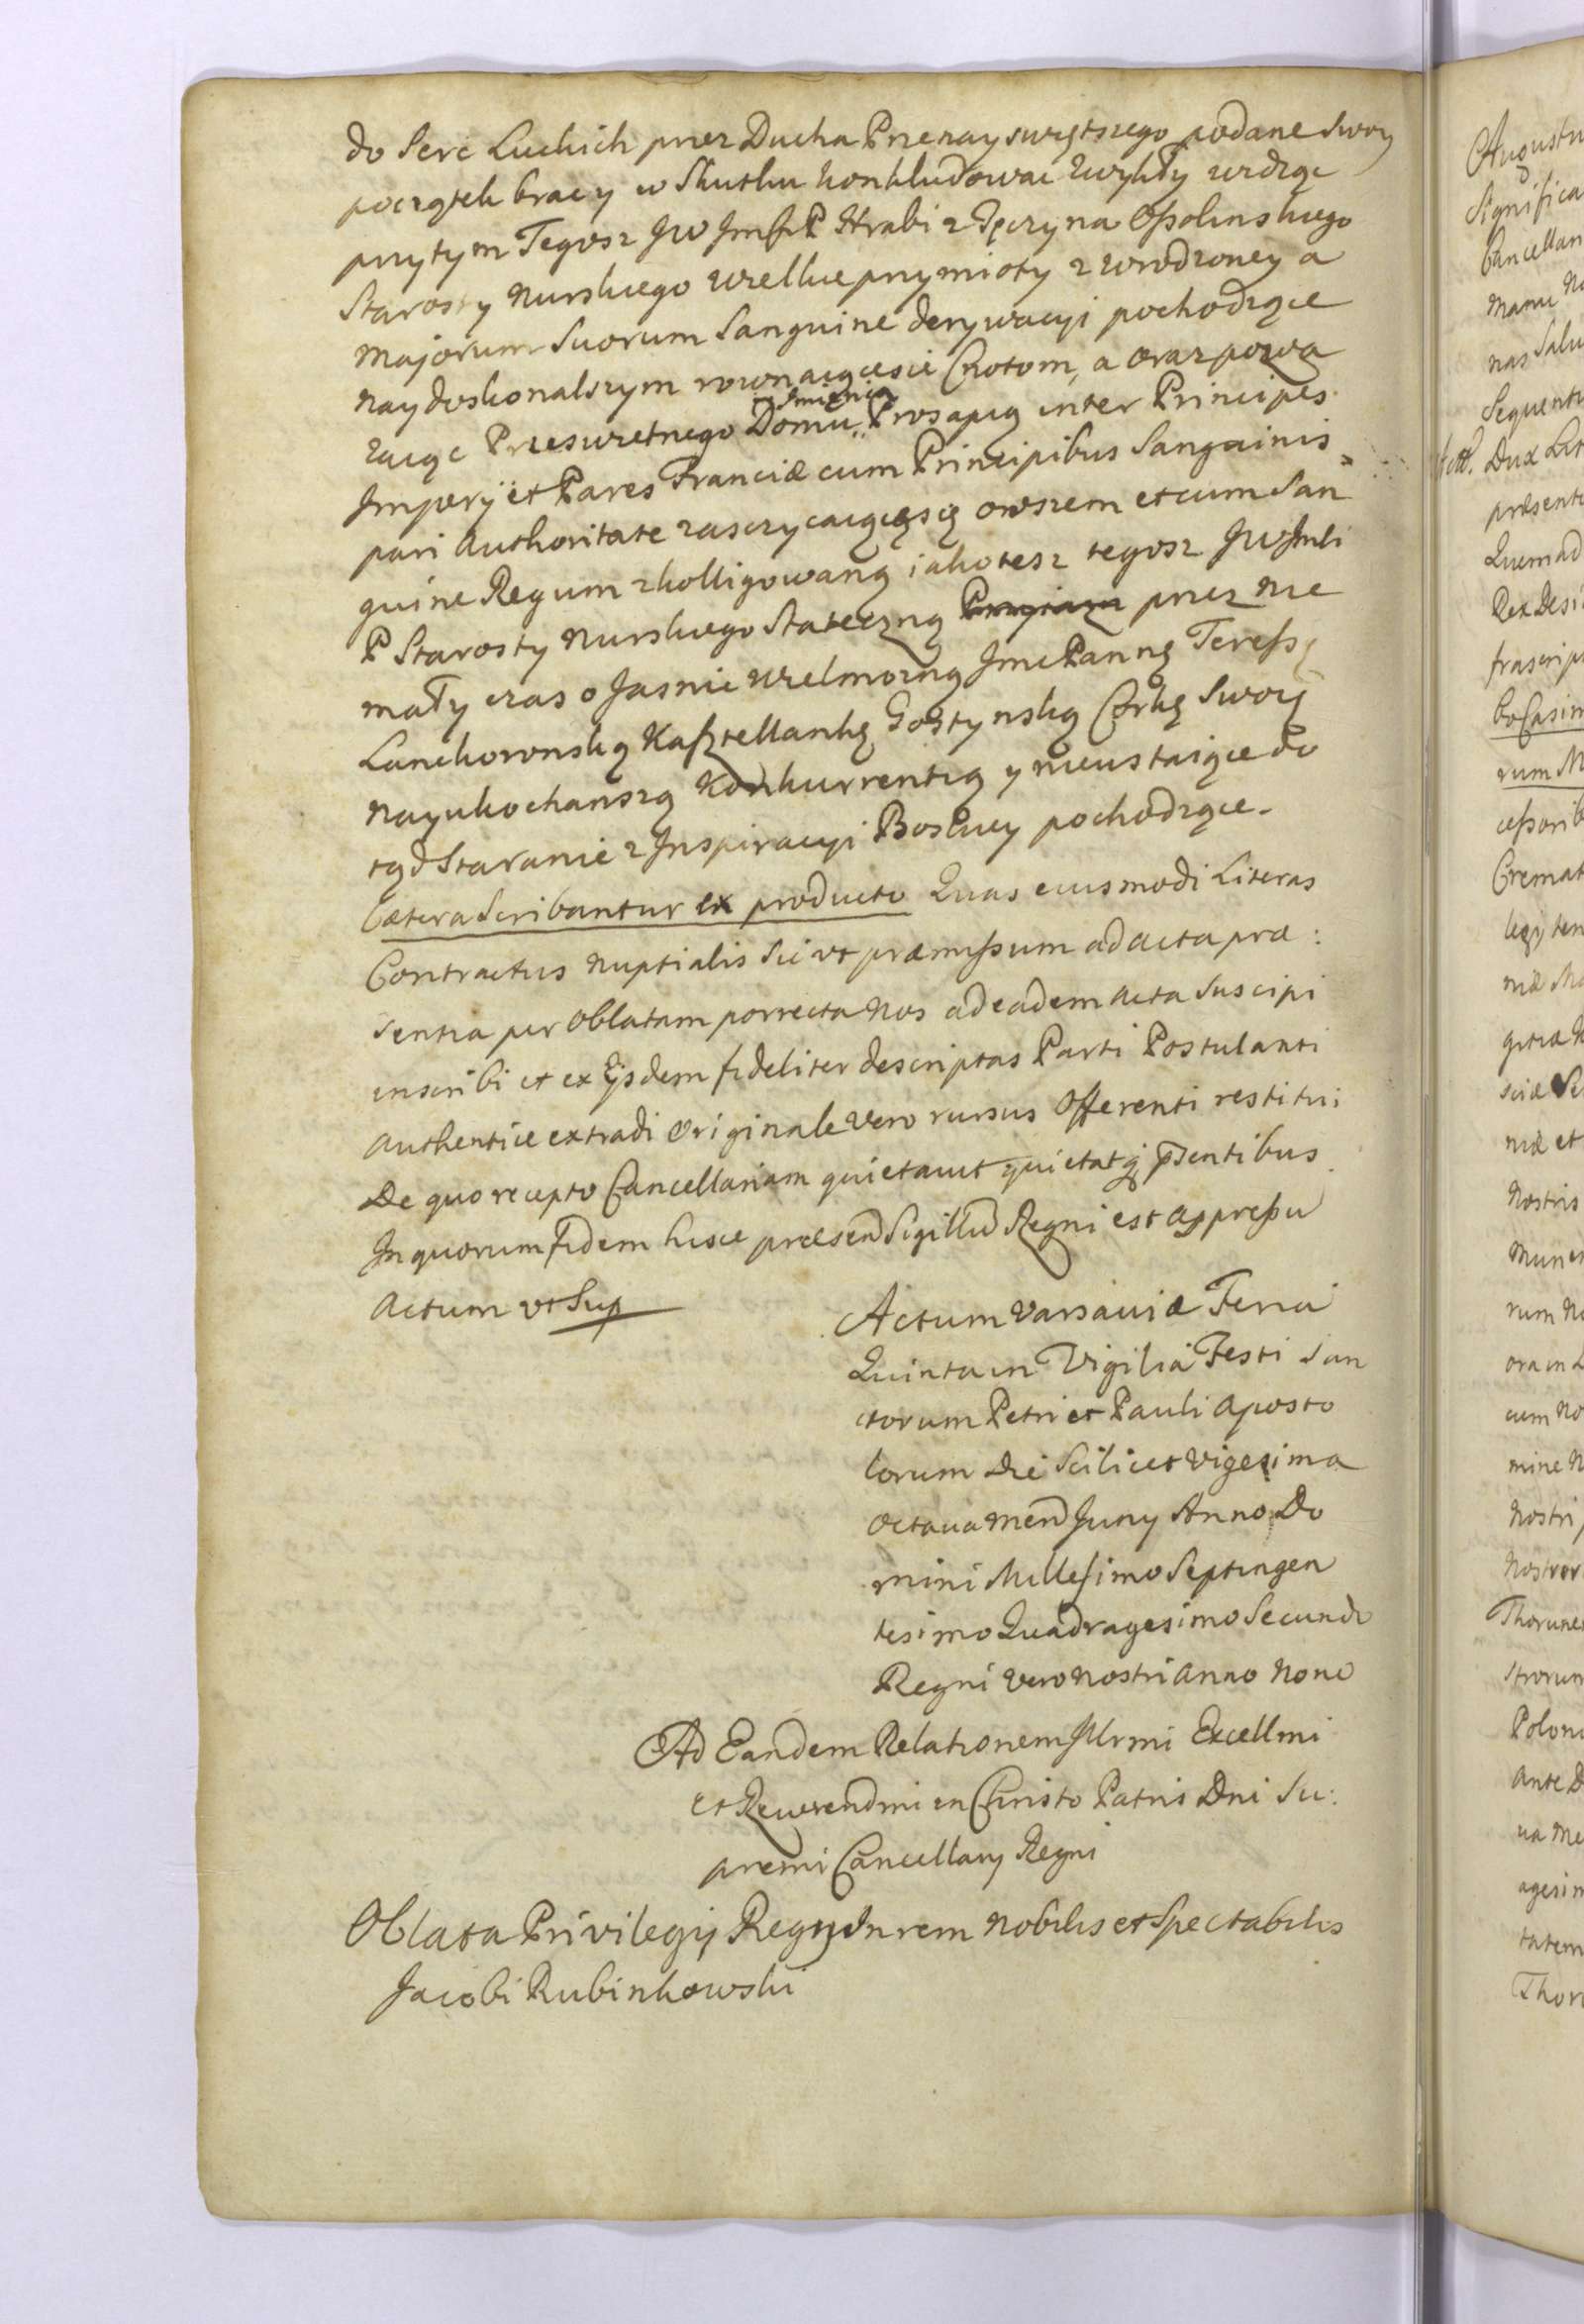 do Serc Luckich przez Ducha Przenayswiętszego podane Swoy
początek bracy w Skutku konkludowac zwykły widząc
przytym Tegosz JW Jmsci P Hrabi z Tęczyna Ossolinskiego
Starosty Nurskiego wielkie przymioty z wrodzoney a
Majorum Suorum Sanguine derywacyi pochodzące
naydoskonalszym rownaiącesie Cnotom, a oraz powa
zaiąc Przeswietnego Domu Imienia Prosapią inter Principes
Imperij et Pares Franciæ cum Principibus Sanguinis
pari Authoritate zasczycaiącęsię owszem et cum San
guine Regum zkolligowaną iakotesz tegosz JWJmsci
P Starosty Nurskiego Stateczną przez nie
mały czas o Jasnie Wielmozną Jmc Pannę Teressę
Lanckoronską Kasztellankę Gostynską Corkę Swoię
Nayukochanszą Konkurrentią y nieustaiące do
tąd Staranie z Inspiracyi Boskiey pochodzące.
Cætera Scribantur ex producto Quas eiusmodi Literas
Contractus Nuptialis Sicut præmissum ad acta præ:
sentia per Oblatam porrecta Nos ad eadem Acta Suscipi
inscribi et ex ijsdem fideliter descriptas Parti Postulanti
Authentice extradi Originale Vero rursus Offerenti restitui
De quo recepto Cancellariam quietavit quietatq̨ p̄sentibus
In quorum fidem hisce præsen̄ Sigillū Regni est appressū
Actum ut Sup
Actum Varsaviæ Feria
Quinta in Vigilia Festi San
ctorum Petri et Pauli Aposto
lorum Die Scilicet Vigesima
Octava Men̄ Juny Anno Do
mini Millesimo Septingen
tesimo Quadragesimo Secundo
Regni Vero Nostri Anno Nono
Ad Eandem Relationem Illrmi Excellmi
et Reverendmi in Christo Patris Dni Su:
premi Cancellary Regni
Oblata Privilegij Regij In rem Nobilis et Spectabilis
Jacobi Rubinkowski